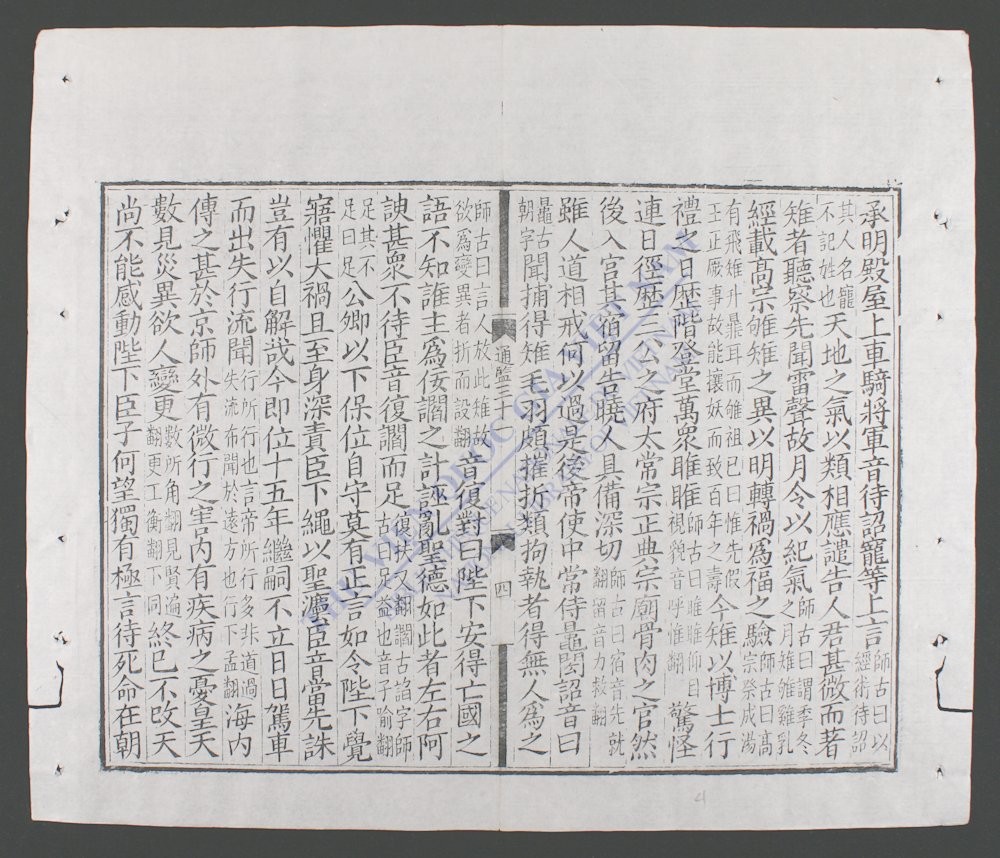 承明殿屋上車騎將軍音待詔寵等上言師古曰以經術待詔
其人名寵不記姓也天地之氣以類相應譴告人君甚微而著
雉者聽察先聞雷聲故月令以紀氣師古曰謂季冬之月雉雊雞乳
經載高宗雊雉之異以明轉禍爲福之驗師古曰高宗祭成湯
有飛雉升鼎耳而雊祖己曰惟先假王正厥事故能攘妖而致百年之壽今雉以博士行
禮之日歷階登堂萬眾睢睢師古曰睢睢仰目視貌音呼惟翻驚怪
連日徑歷三公之府太常宗正典宗廟骨肉之官然
後入宮其宿留告曉人具備深切師古曰宿音先就翻留音力救翻
雖人道相戒何以過是後帝使中常侍鼂閎詔音曰
鼂古朝字聞捕得雉毛羽頗摧折類拘執者得無人爲之
通監三十一
四
師古曰言人放此雉故欲爲變異者折而設翻音復對曰陛下安得亡國之
語不知誰主爲佞讇之計誣亂聖德如此者左右阿
諛甚衆不待臣音復讇而足復扶又翻讇古諂字師古曰足益也音子喻翻
足其不足曰足公卿以下保位自守莫有正言如令陛下覺
寤懼大禍且至身深責臣下繩以聖灋臣音當先誅
豈有以自解哉今即位十五年繼嗣不立日日駕車
而出失行流聞行所行也言帝所行多非道過失流布聞於遠方也行下孟翻海內
傳之甚於京師外有微行之害內有疾病之憂皇天
數見災異欲人變更數所角翻見賢遍翻更工衡翻下同終已不改天
尚不能感動陛下臣子何望獨有極言待死命在朝
THƯ VIỆN QUỐC GIA VIỆT NAM
4